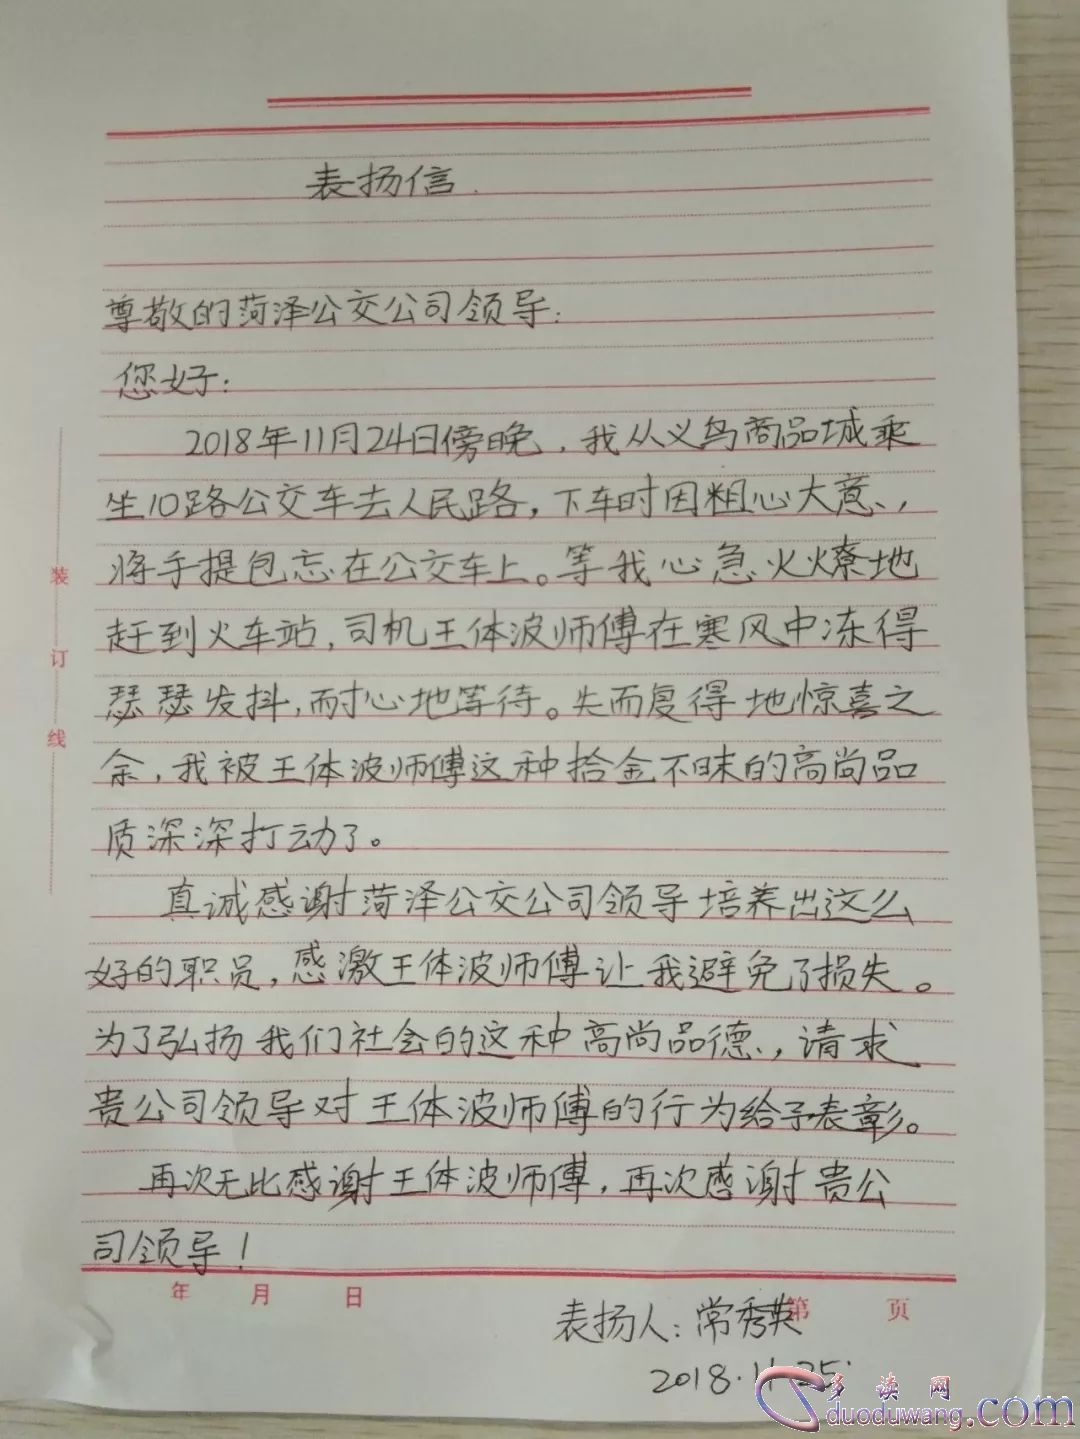 表扬信.
尊敬的菏泽公交公司领导:
您好:
2018年11月24日傍晚,我从义乌商品城乘
坐10路公交车去人民路,下车时因粗心大意,
将手提包忘在公交车上。等我心急火燎地
赶到火车站,司机王体波师傅在寒风中冻得
瑟瑟发抖,耐心地等待。失而复得地惊喜之
余,我被王体波师傅这种拾金不昧的高尚品
质深深打动了。
真诚感谢菏泽公交公司领导培养出这么
好的职员,感激王体波师傅让我避免了损失。
为了弘扬我们社会的这种高尚品德,请求
贵公司领导对王体波师傅的行为给予表彰。
再次无比感谢王体波师傅,再次感谢贵公
司领导!
年 月 日
第 页
表扬人:常秀英
2018.11.25.
装
订
线
多读网
duoduwang.com